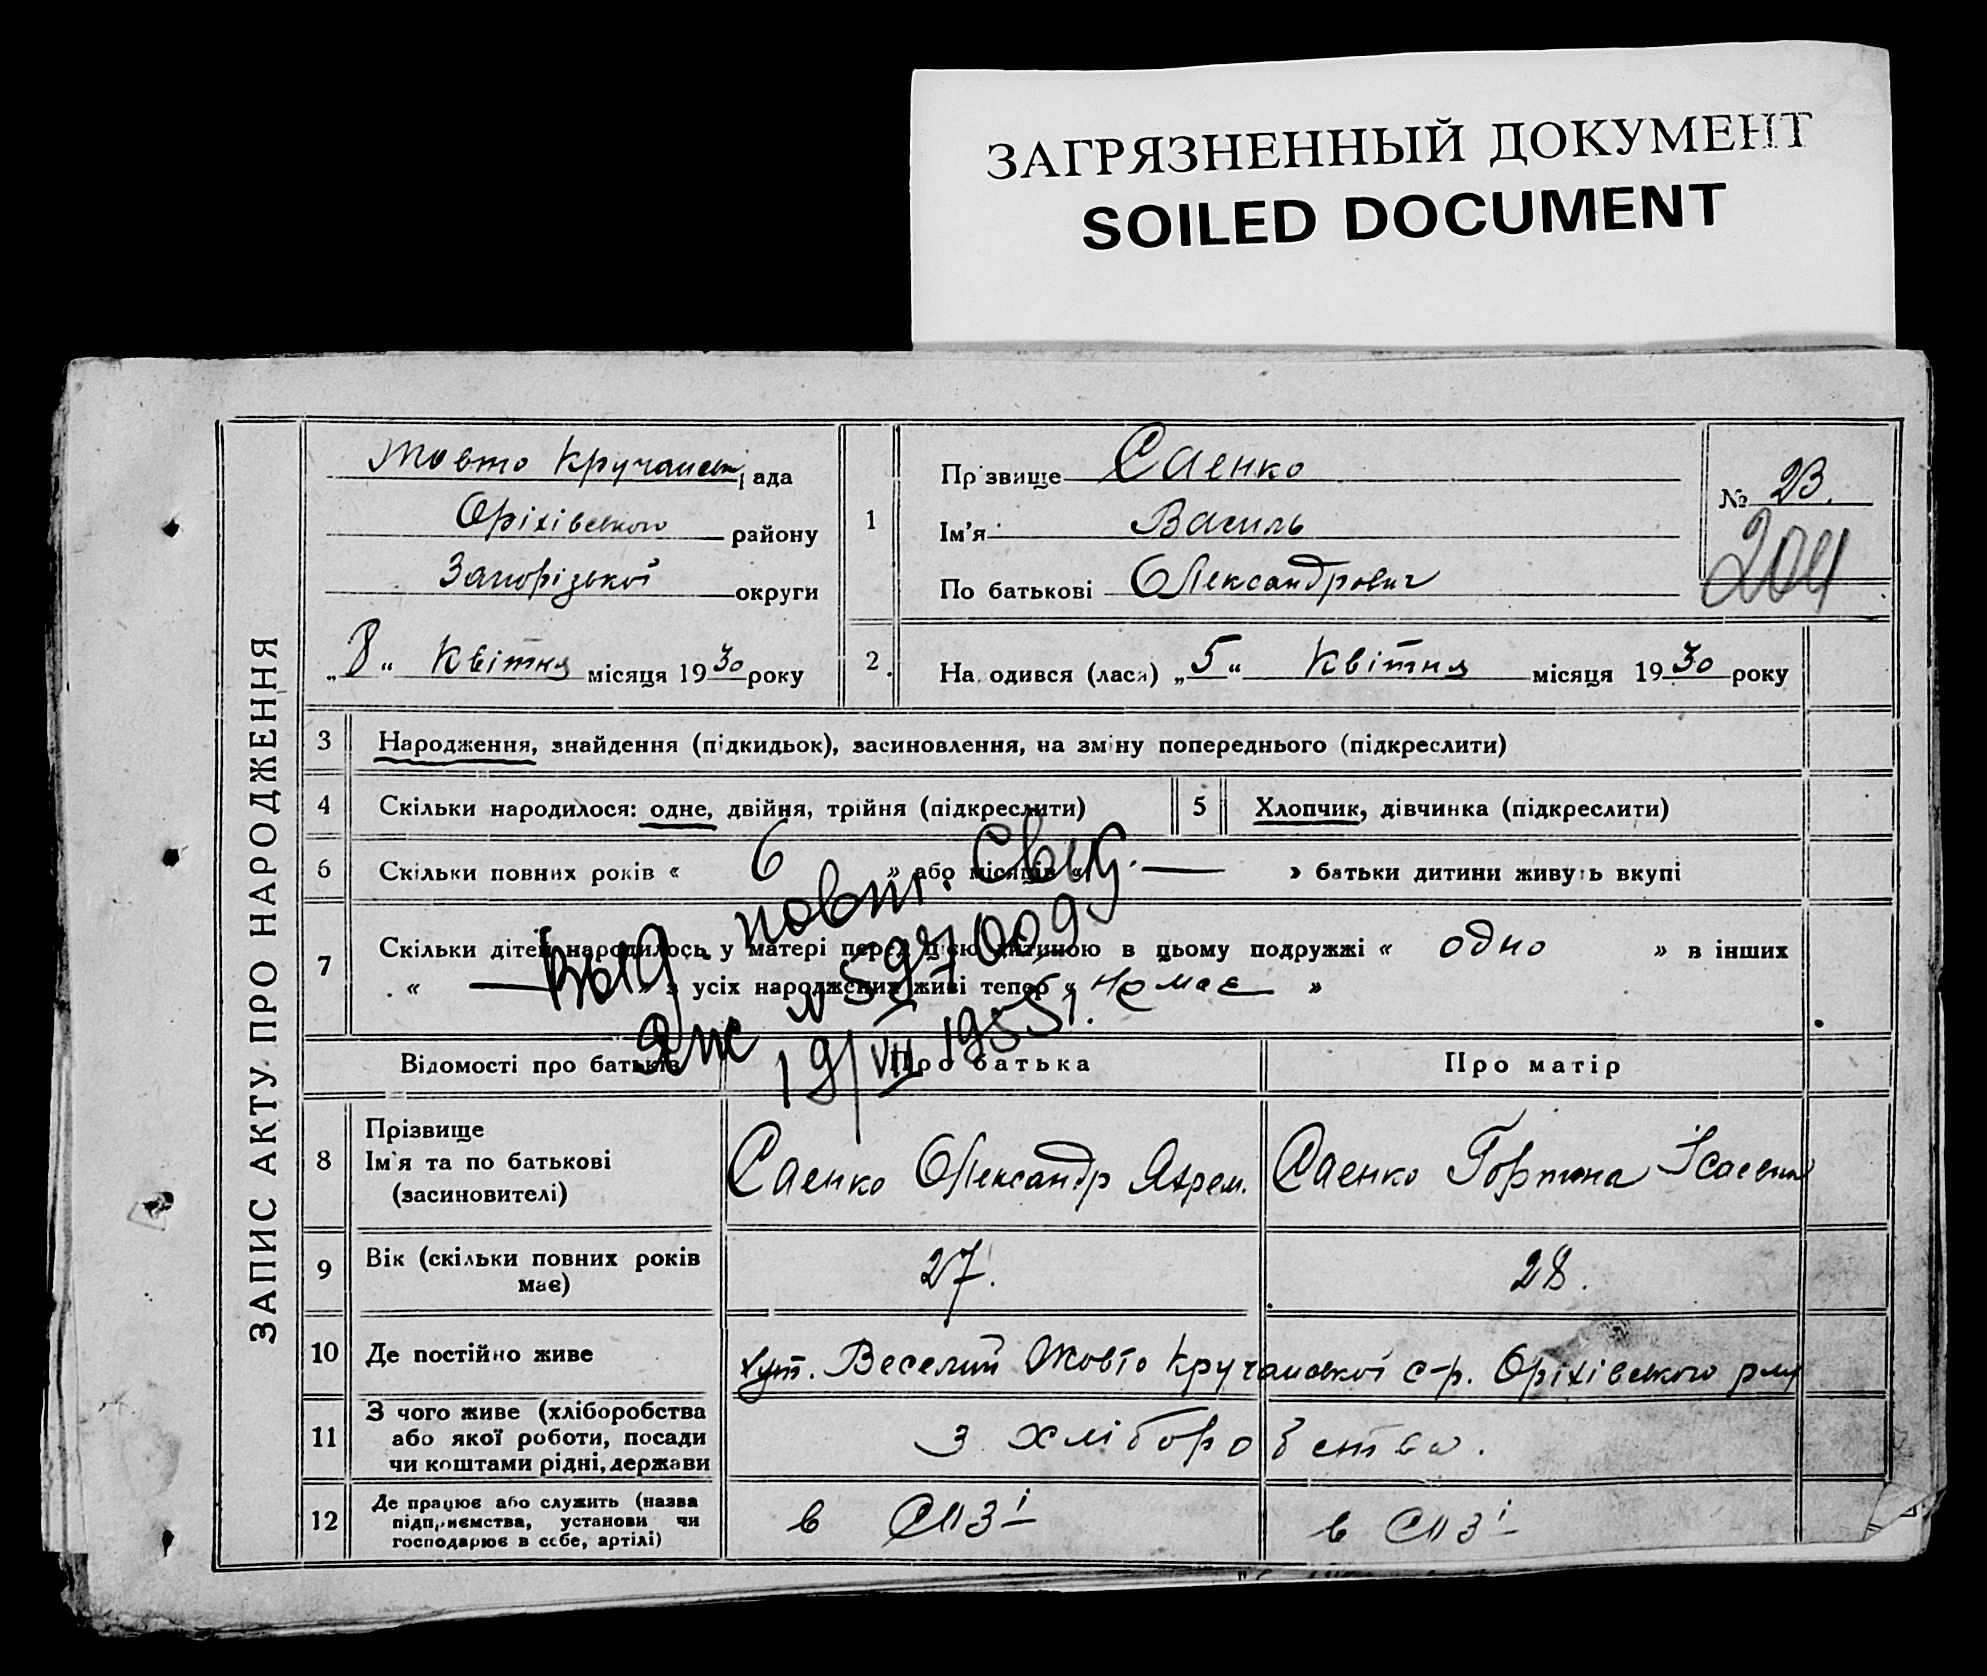 ЗАГРЯЗНЕННЫЙ ДОКУМЕНТ
SOILED DOCUMENT
ЗАПИС АКТУ ПРО НАРОДЖЕННЯ
Жовто Кручанськ рада
Оріхівського району
Запорізької округи
„8“ Квітня місяця 1930 року
1 Прізвище Саенко
Ім'я Василь
По батькові Олександрович
№ 23.
204
2. Народився (лася) „5“ Квітня місяця 1930 року
3 Народження, знайдення (підкидьок), засиновлення, на зміну попереднього (підкреслити)
4 Скільки народилося: одне, двійня, трійня (підкреслити) 5 Хлопчик, дівчинка (підкреслити)
6 Скільки повних років « 6 » або місяців « — » батьки дитини живуть вкупі
7 Скільки дітей народилось у матері перед цією дитиною в цьому подружжі « одно » в інших
« — » з усіх народжених живі тепер « немає »
Выд. повт. свид.
ЯЖ № 597009
19/VII 1955 г.
Відомості про батьків Про батька Про матір
8 Прізвище
Ім'я та по батькові
(засиновителі)
Саенко Олександр Яхрем. Саенко Горпина Ісаевна
9 Вік (скільки повних років
має)
27. 28.
10 Де постійно живе хут. Веселий Жовто Кручанської с-р. Оріхівського р-ну
11 З чого живе (хліборобства
або якої роботи, посади
чи коштами рідні, держави
з хліборобства.
12 Де працює або служить (назва
підприємства, установи чи
господарює в себе, артілі)
в СПЗі в СПЗі